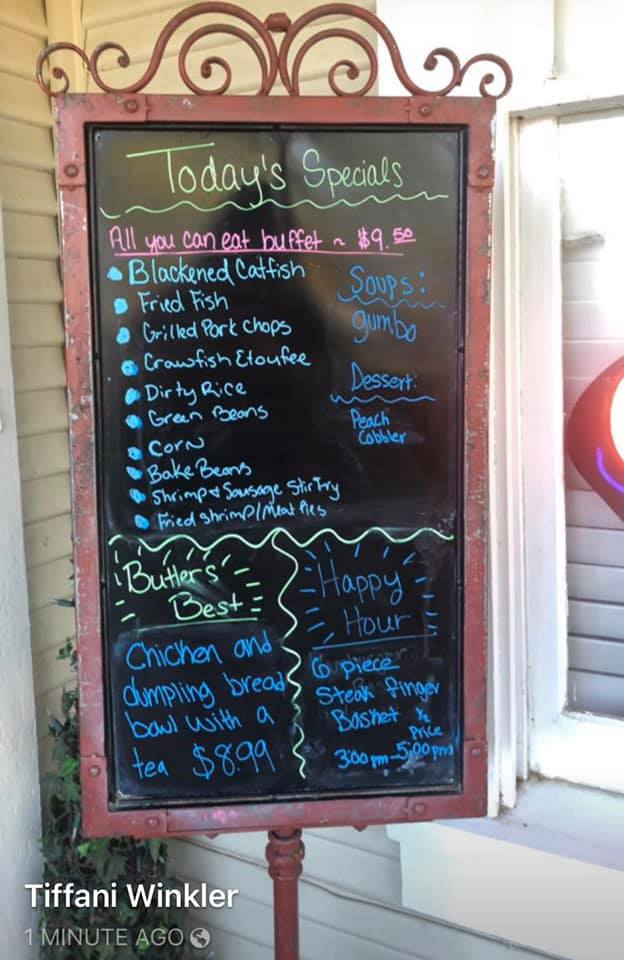 Today's Specials
All you can eat buffet ~ $9.50
Blackened Catfish
Fried Fish
Grilled Pork Chops
Crawfish Etoufee
Dirty Rice
Green Beans
Corn
Bake Beans
Shrimp & Sausage Stir Fry
Fried Shrimp/Meat Pies
Soups:
gumbo
Dessert:
Peach
Cobbler
Butler's
Best
Chicken and
dumpling bread
bowl with a
tea $8.99
Happy
Hour
6 piece
Steak finger
Basket ½
Price
3:00 pm - 5:00 pm
Tiffani Winkler
1 MINUTE AGO